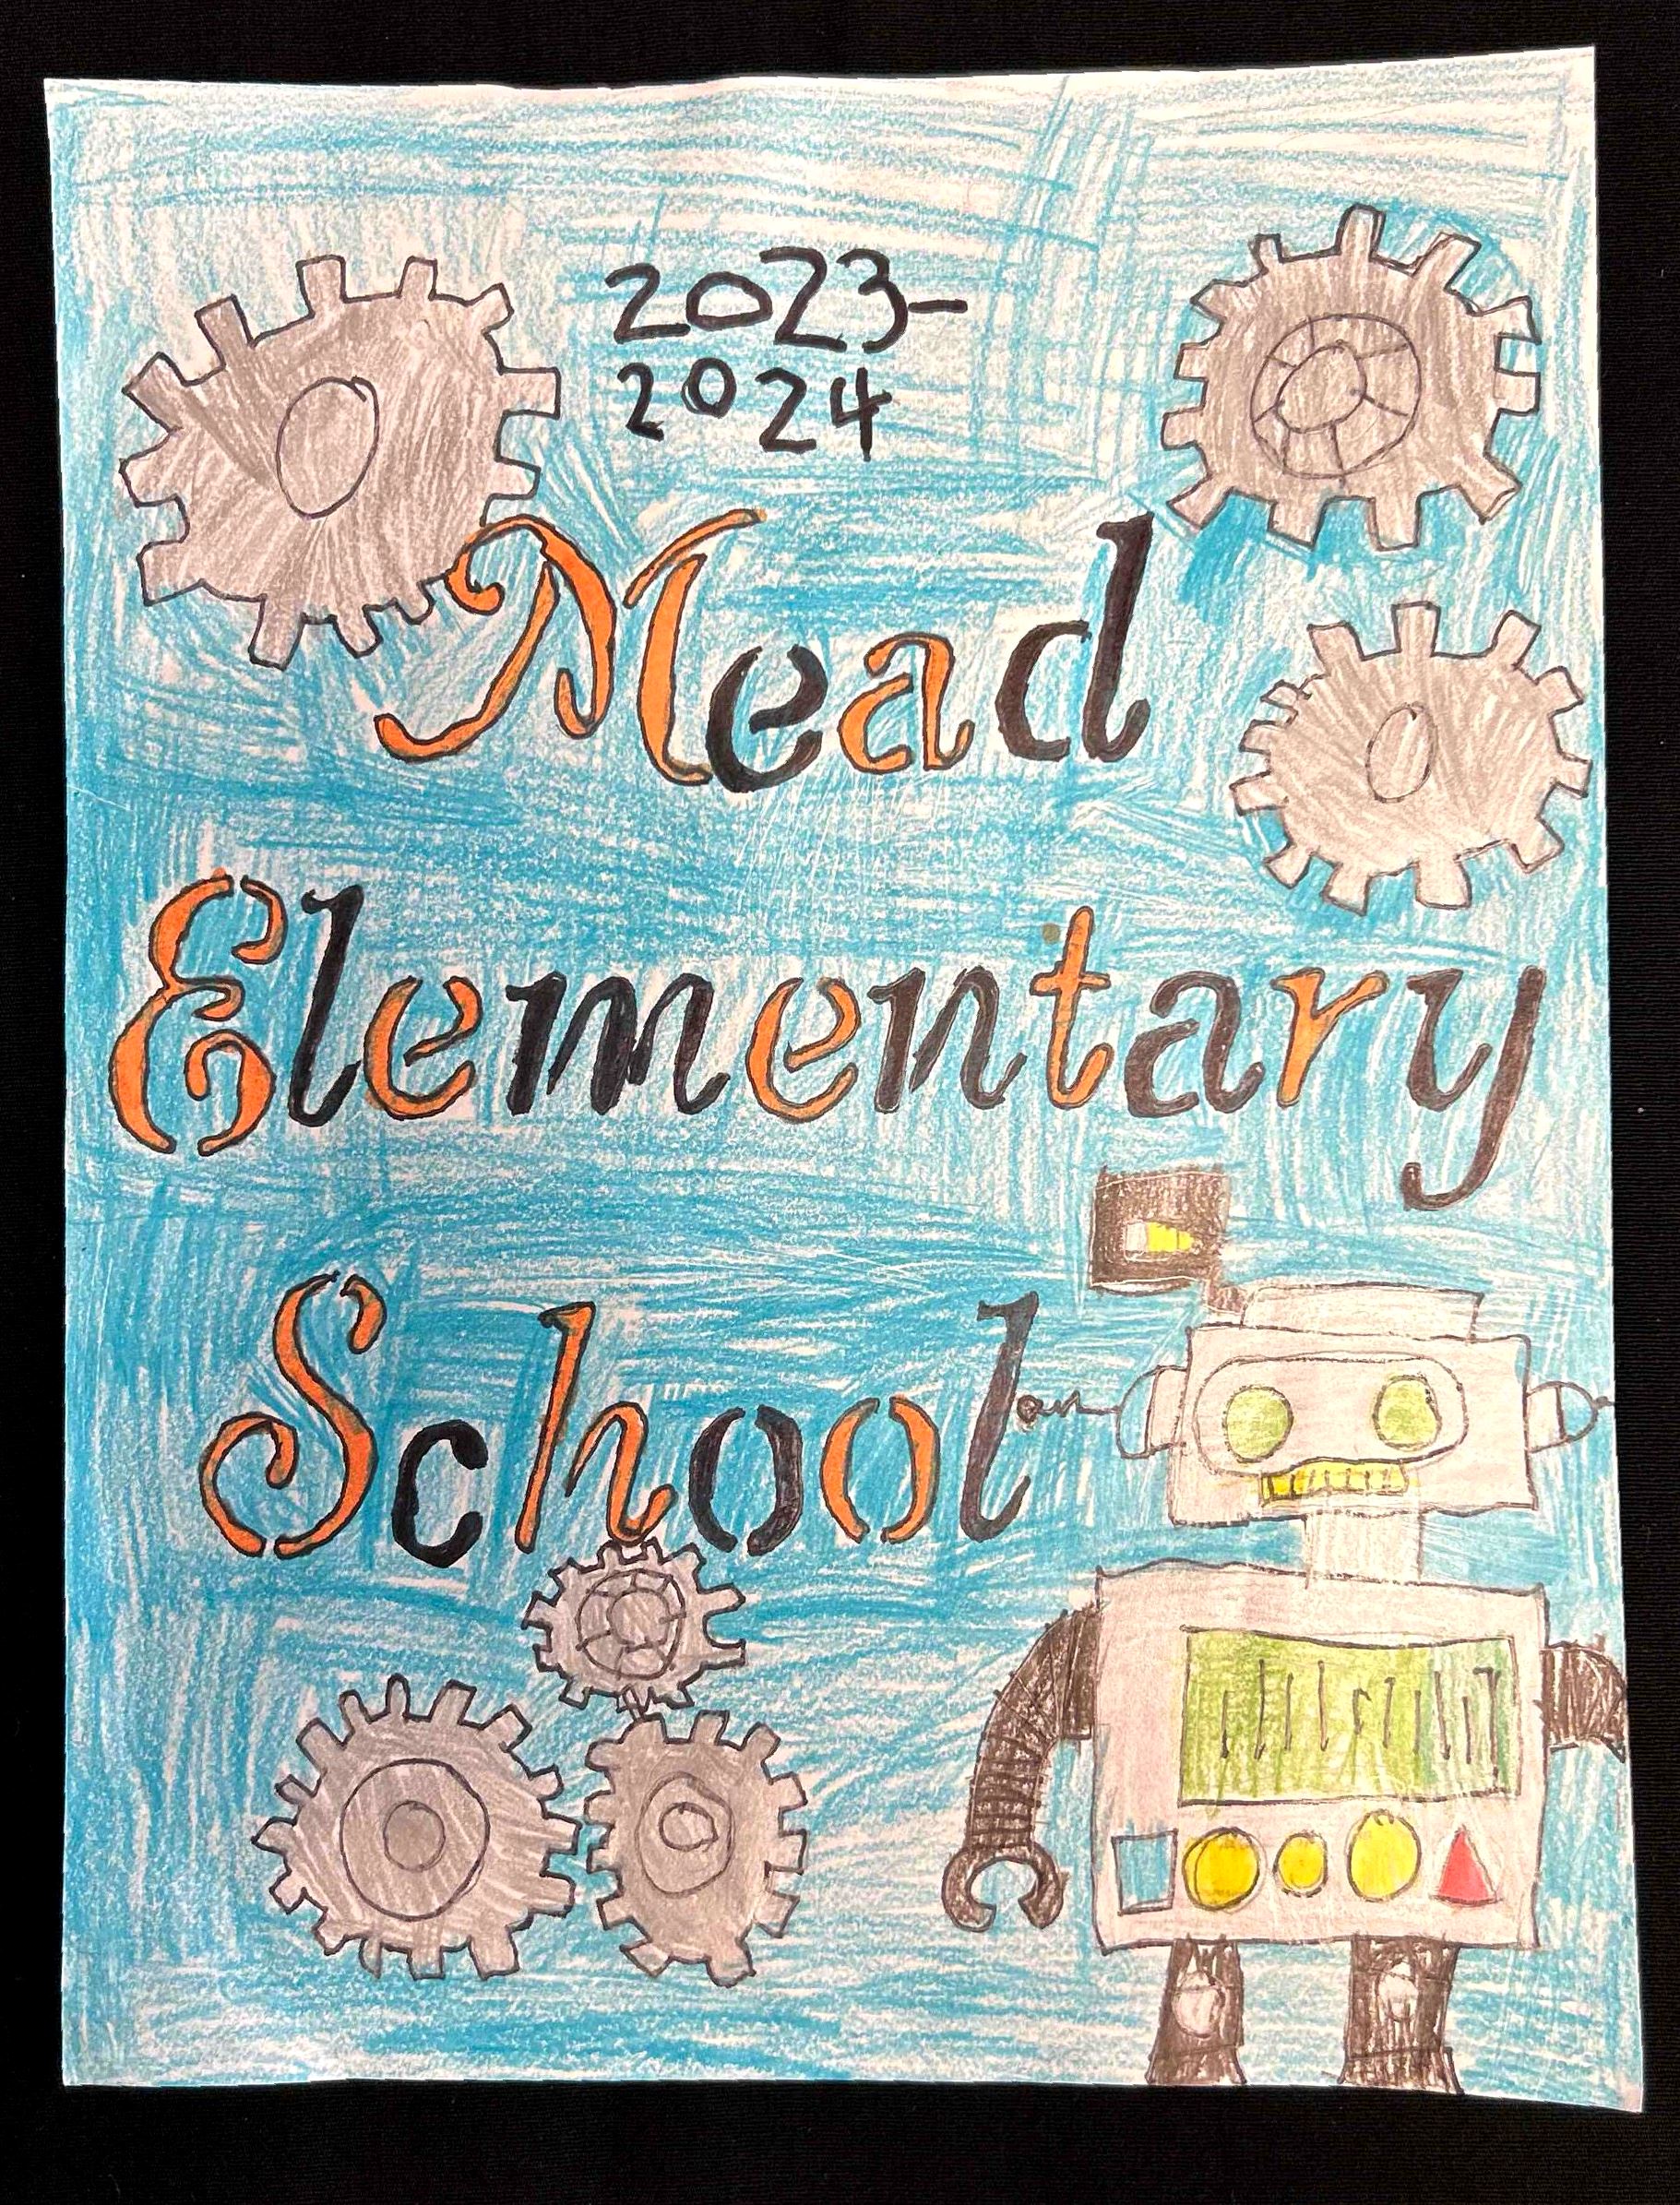 2023-
2024
Mead
Elementary
School